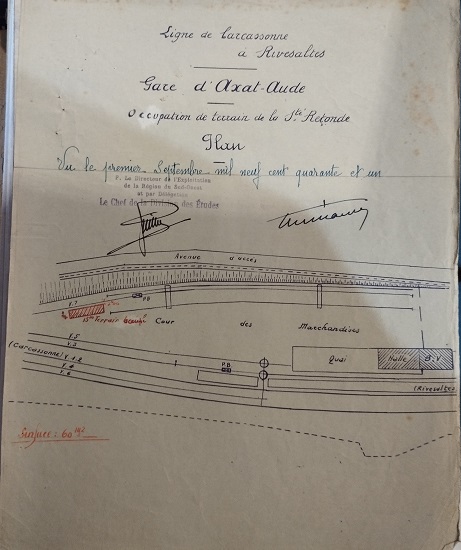 Ligne de Carcassonne
à Rivesaltes
Gare d'Axat-Aude
Occupation de terrain de la Sté Retonde
Plan
Vu le premier Septembre mil neuf cent quarante et un
P. Le Directeur de l'Exploitation
de la Région du Sud-Ouest
et par Délégation
Le Chef de la Division des Études
Avenue d'accès
V.7
P.B
Terrain occupé
Cour des Marchandises
V.5
V.3
(Carcassonne) V.1.2
V.4
V.6
P.B.
Quai
Halle
B.V
(Rivesaltes)
Surface: 60 m2